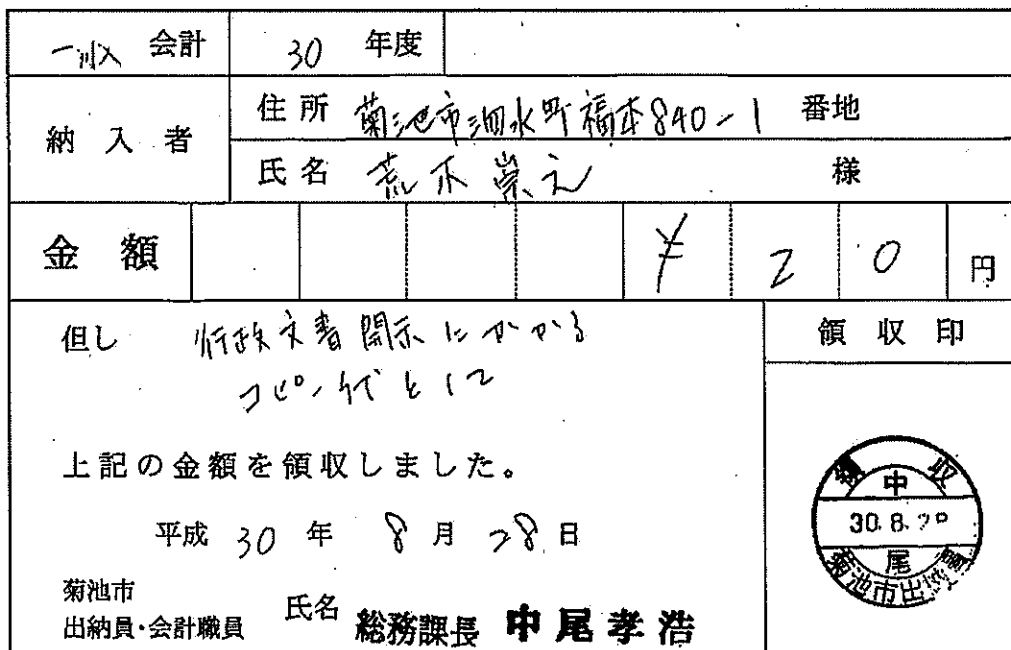 一般 会計 30 年度
納入者 住所 菊池市泗水町福本840-1 番地
氏名 荒木崇之 様
金額 ¥20円
但し 行政文書開示にかかる
コピー代として
領収印
上記の金額を領収しました。
平成 30 年 8 月 28 日
菊池市
出納員・会計職員 氏名 総務課長 中尾孝浩
領収
中
30.8.28
尾
菊池市出納員